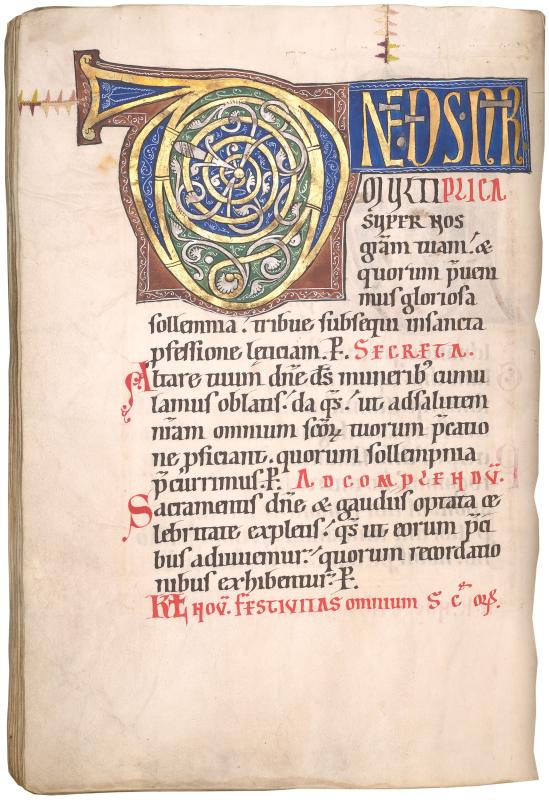 DNE DS NR
MULTIPLICA
SUPER NOS
grãm tuam / &
quorum p̃ueni
mus gloriosa
sollemnia . tribue subsequi insancta
pfessione leticiam. P. SECRETA.
Altare tuum dñe ds̃ munerib; cumu
lamus oblatis / da qs̃ / ut adsalutem
nr̃am omnium scõꝝ tuorum p̃catio
ne pficiant . quorum sollempnia
p̃currimus. P. ADCOMPLENDŨ.
Sacramentis dñe & gaudiis optata ce
lebritate expletis / qs̃ ut eorum p̃ci
bus adiuuemur / quorum recordatio
nibus exhibentur. P.
KL NOV̄. FESTIVITAS omnium SC̄orꝝ.